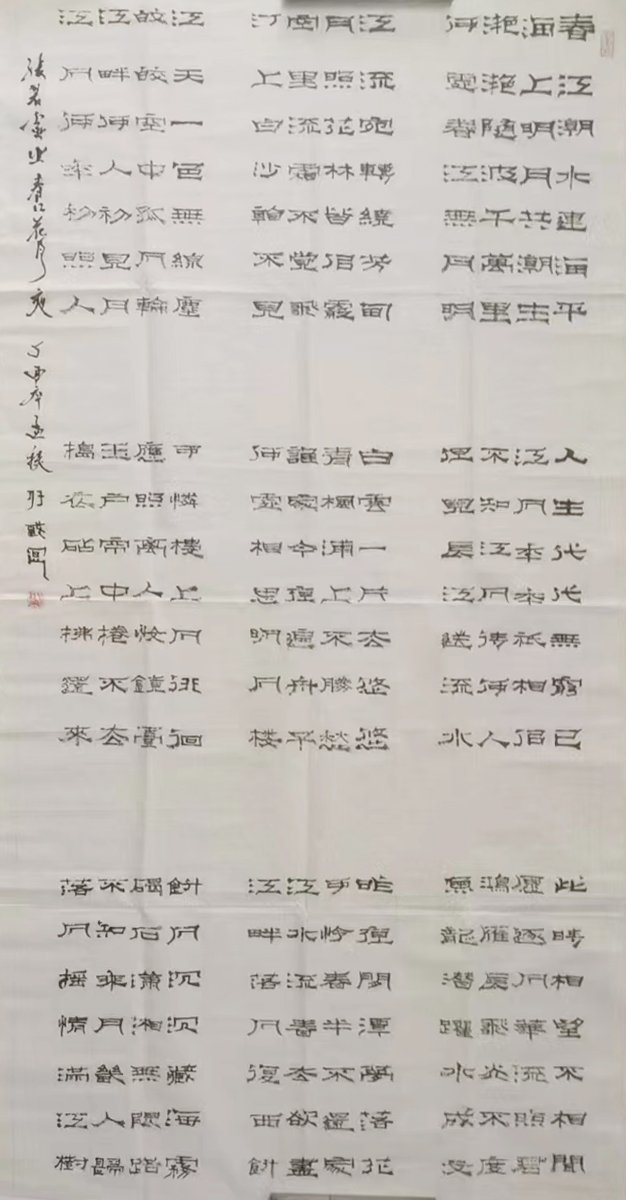 春江潮水連海平
海上明月共潮生
滟滟隨波千萬里
何處春江無月明
江流宛轉繞芳甸
月照花林皆似霰
空里流霜不覺飛
汀上白沙看不見
江天一色無纖塵
皎皎空中孤月輪
江畔何人初見月
江月何年初照人
人生代代無窮已
江月年年祇相似
不知江月待何人
但見長江送流水
白雲一片去悠悠
青楓浦上不勝愁
誰家今夜扁舟子
何處相思明月樓
可憐樓上月徘徊
應照離人妝鏡臺
玉戶帘中捲不去
搗衣砧上拂還來
此時相望不相聞
願逐月華流照君
鴻雁長飛光不度
魚龍潛躍水成文
昨夜閒潭夢落花
可憐春半不還家
江水流春去欲盡
江畔落月復西斜
斜月沉沉藏海霧
碣石瀟湘無限路
不知乘月幾人歸
落月搖情滿江樹
張若虛之春江花月夜
丁酉年孟秋